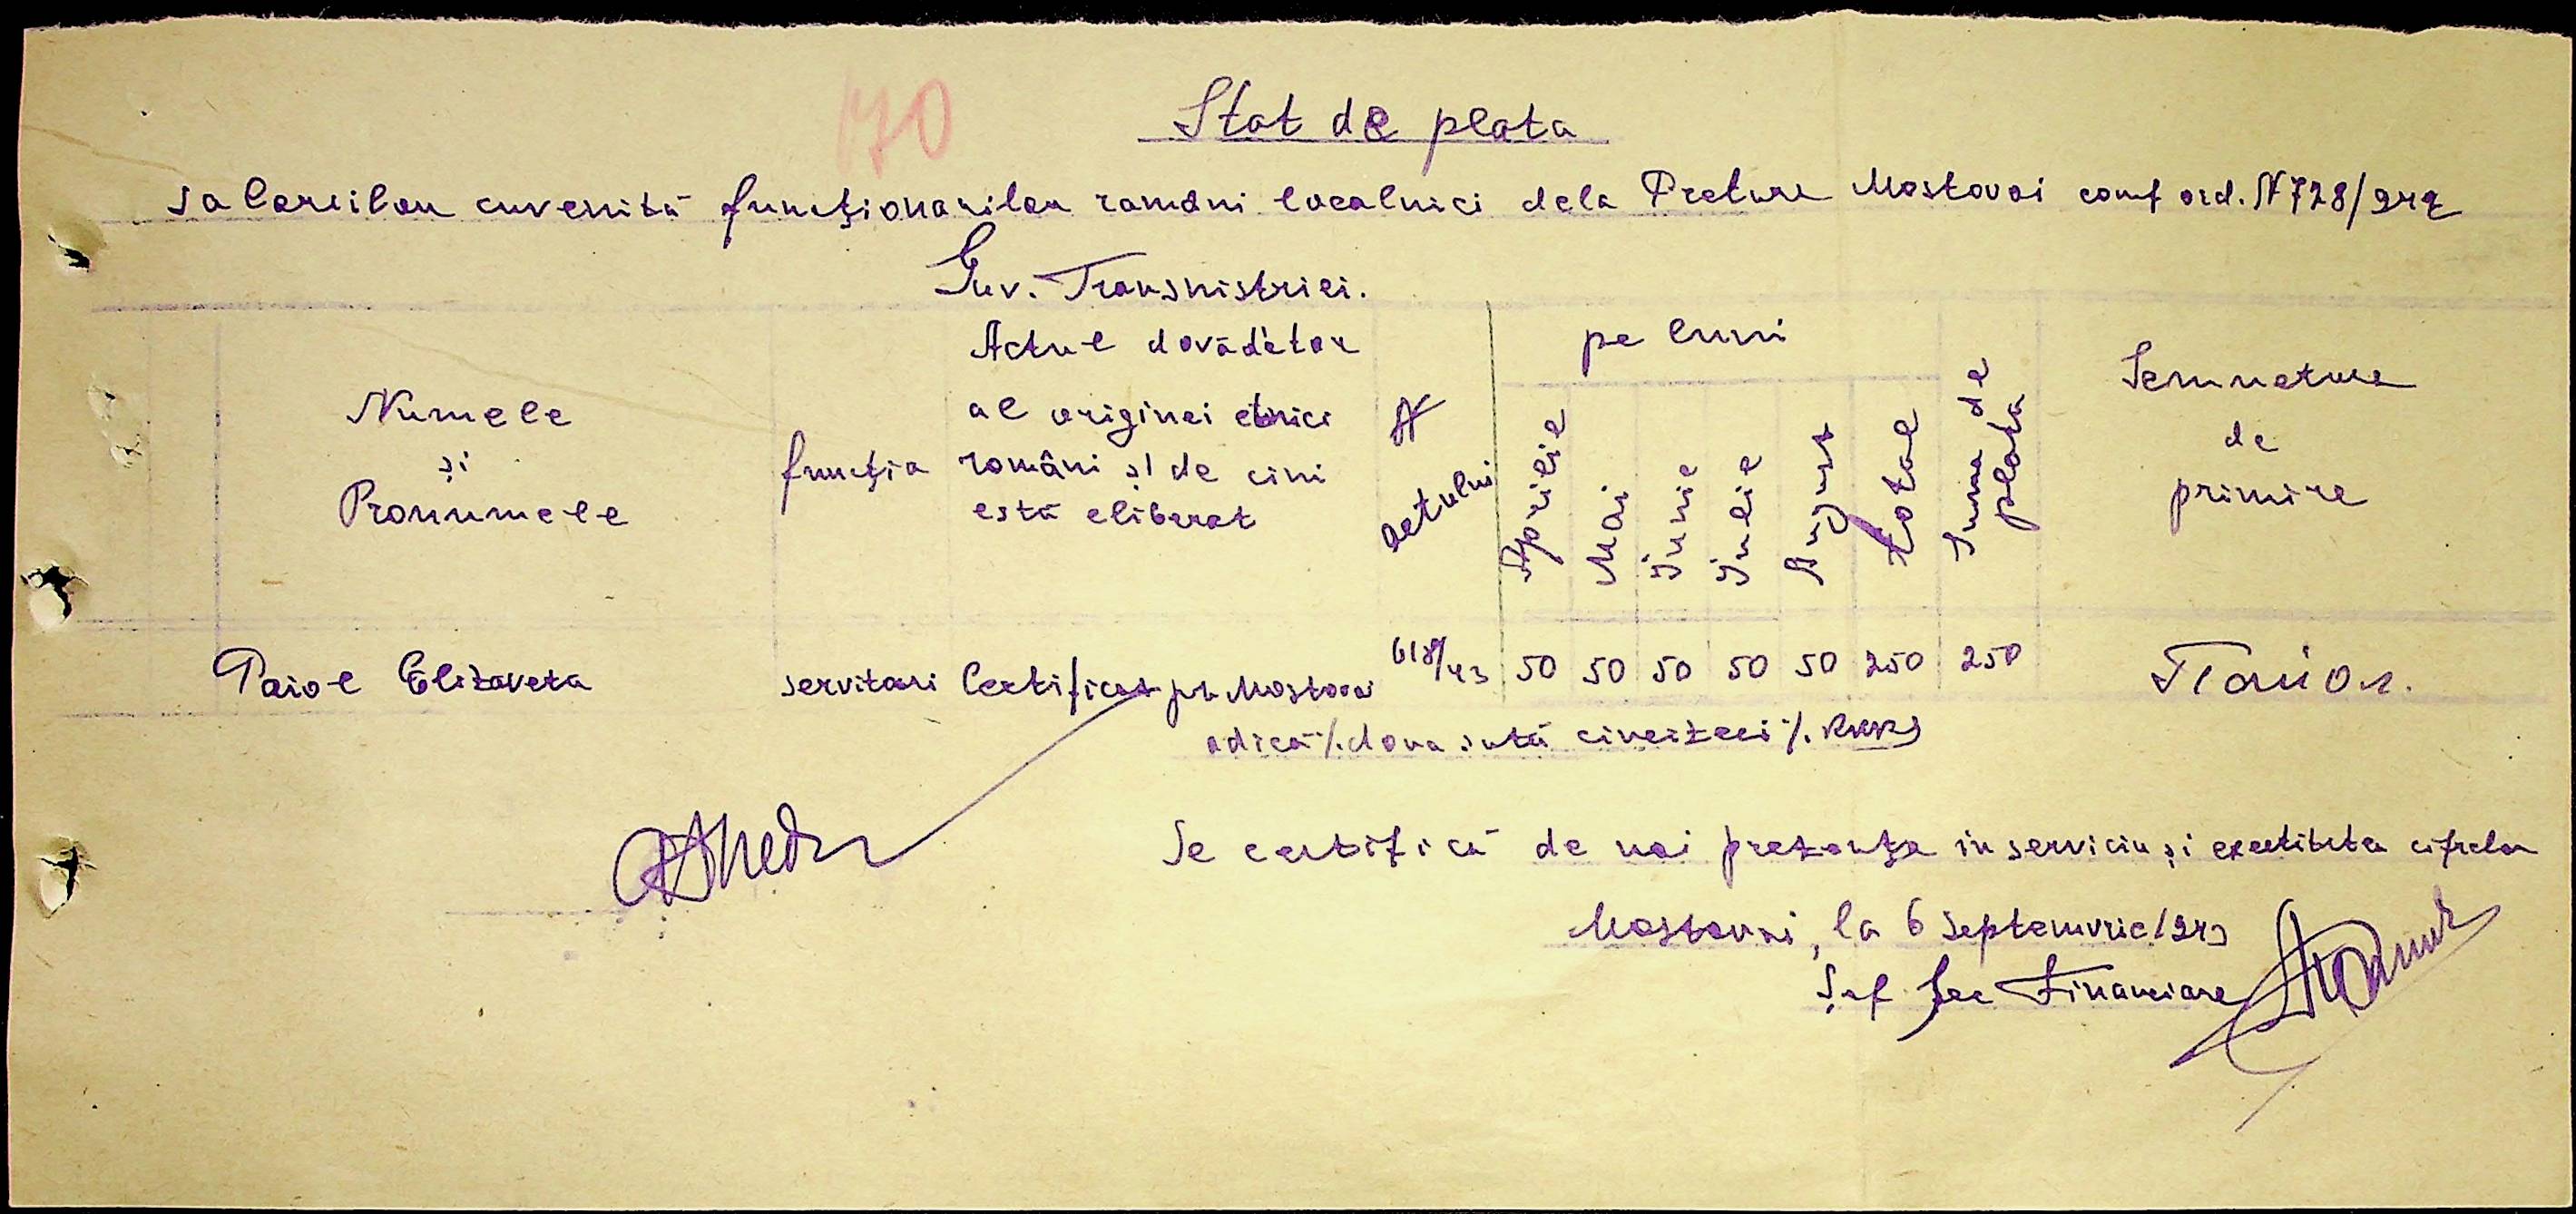 170
Stat de plata
salariilor cuvenită funcționarilor români localnici dela Pretura Mostovoi conf ord. N 728/942
Guv. Transnistriei.
Numele
și
Pronumele
funcția
Actul dovădĕtor
al originei etnici
români și de cini
estă eliberat
N
actului
pe luni
Aprilie
Mai
iunie
iulie
August
total
Suma de
plata
Semnetura
de
primire
Paiol Elizaveta servitori Certificat pr. Mostovoi 618/43 50 50 50 50 50 250 250 Пайол.
adică %. doua sută cincizeci %. RKKS
Se certifică de noi prezența in serviciu și exactitatea cifrelor
Mostovoi, la 6 Septemvrie 1943
Șef Sec Financiare